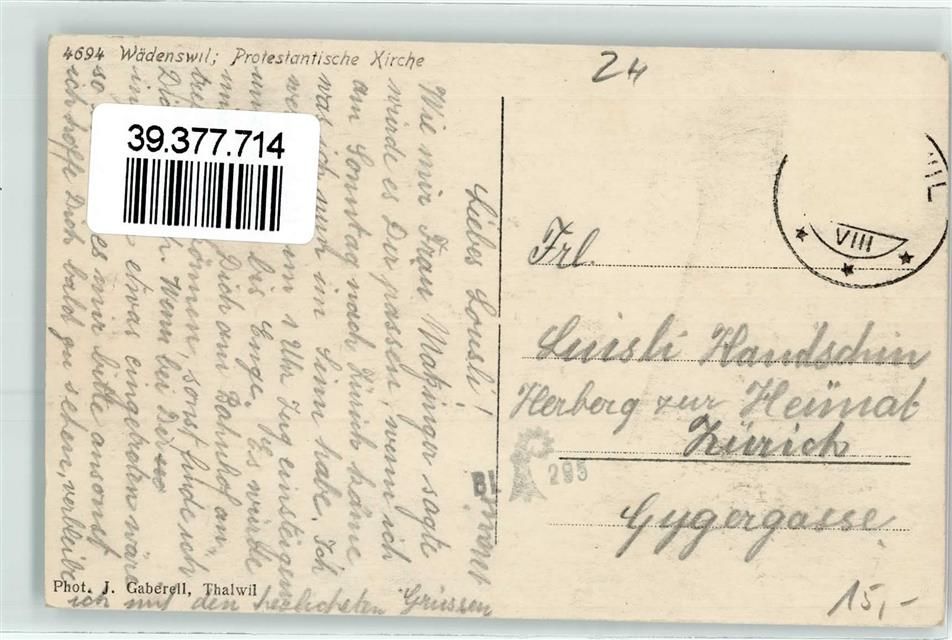 4694 Wädenswil; Protestantische Kirche
24
39.377.714
Liebes Louisli!
Wie mir Frau sagte
würde es Dir passen, wenn ich
am Sonntag nach Zürich käme
was ich auch im Sinn habe. Ich
im 1 Uhr Zug einsteigen
bis Enge. Es würde
Dich am Bahnhof an
können, sonst finde ich
Wenn bei Dir
etwas eingetreten wäre
so es mir bitte ansonst
ich hoffe Dich bald zu sehen, verbleibe
ich mit den herzlichsten Grüssen
VIII
Frl.
Luisli Handschin
Herberg zur Heimat
Zürich
295
Gygergasse.
Phot. J. Gaberell, Thalwil
15,-